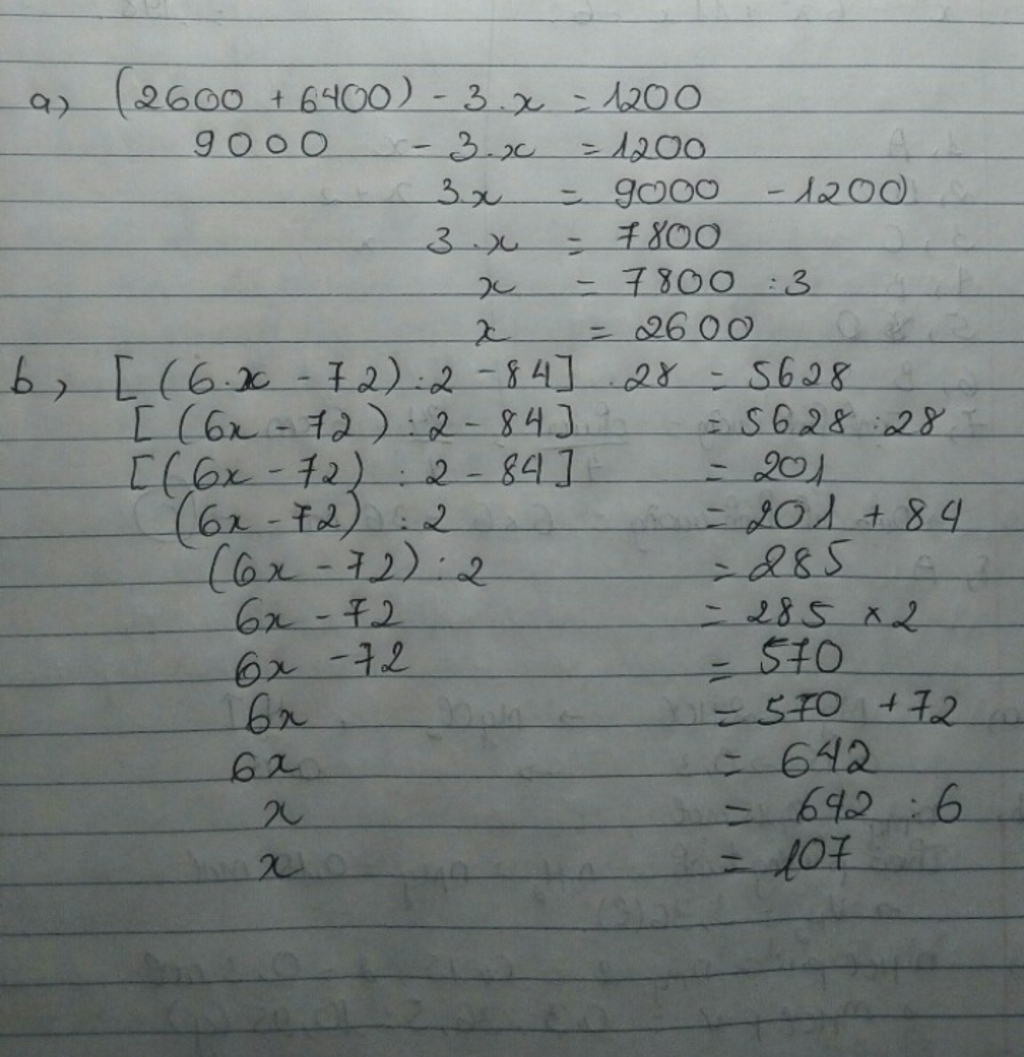 a, (2600 + 6400) - 3.x = 1200
9000 - 3.x = 1200
3.x = 9000 - 1200
3.x = 7800
x = 7800 : 3
x = 2600
b, [(6.x - 72) : 2 - 84] . 28 = 5628
[(6x - 72) : 2 - 84] = 5628 : 28
[(6x - 72) : 2 - 84] = 201
(6x - 72) : 2 = 201 + 84
(6x - 72) : 2 = 285
6x - 72 = 285 × 2
6x - 72 = 570
6x = 570 + 72
6x = 642
x = 642 : 6
x = 107